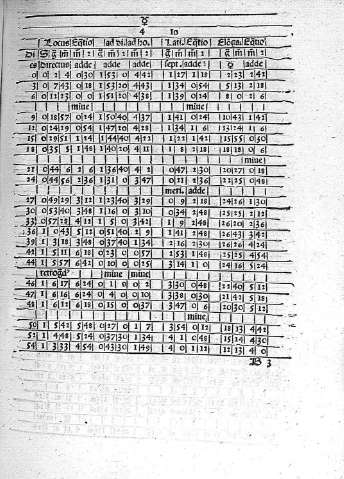 ☿
4 10
Locus Eq̃tio ad vi. ad ho. Lati. Eq̃tio Elõga. Eq̃tio
Di S g̃ m̃ g̃ m̃ 2 g̃ m̃ 2
es directus adde adde sept. adde
0 0 2 4 0 30 1 53 0 4 42 1 27 1 18 2 23 2 42
3 0 7 43 0 18 1 53 20 4 43 1 34 0 54 5 13 2 18
6 0 1 51 20 4 38 1 39 0 24 8 0 2 6
minue minue
9 0 18 57 0 24 1 50 40 4 37 1 41 0 24 10 43 1 42
12 0 24 29 0 54 1 47 20 4 28 1 34 1 6 13 24 1 6
15 0 29 51 1 24 1 44 40 4 22 1 22 1 42 15 55 0 50
18 0 35 5 1 42 1 40 20 4 11 1 8 2 18 18 18 0 6
minue
21 0 44 6 2 6 1 36 40 4 2 0 47 2 30 20 27 0 18
24 0 44 56 2 36 1 31 0 3 47 0 21 2 36 22 25 0 48
meri. adde
27 0 49 29 3 12 1 23 40 3 29 0 9 2 18 24 26 1 30
30 0 53 40 3 48 1 16 0 3 10 0 34 2 48 25 25 2 12
33 0 57 28 4 12 1 5 0 3 42 1 9 2 48 26 20 2 36
36 1 0 43 5 12 0 51 40 2 9 1 41 2 48 26 43 3 42
39 1 3 18 3 48 0 37 40 1 34 2 16 2 30 26 26 4 24
42 1 5 11 6 18 0 23 0 0 57 2 53 1 48 25 25 4 54
44 1 5 57 6 42 0 10 0 0 25 3 14 1 0 24 16 5 24
retrogã minue minue
46 1 6 17 6 24 0 1 0 0 2 3 30 0 48 22 40 5 12
47 1 6 16 6 24 0 4 0 0 10 3 38 0 30 21 42 5 18
48 1 6 12 6 18 0 15 0 0 37 3 47 0 6 20 30 5 12
minue
50 1 5 42 5 48 0 27 0 1 7 3 54 0 12 18 13 4 42
52 1 4 48 5 24 0 37 30 1 34 4 1 0 48 15 24 4 30
54 1 3 33 4 54 0 43 30 1 49 4 0 1 12 12 13 4 0
B 3